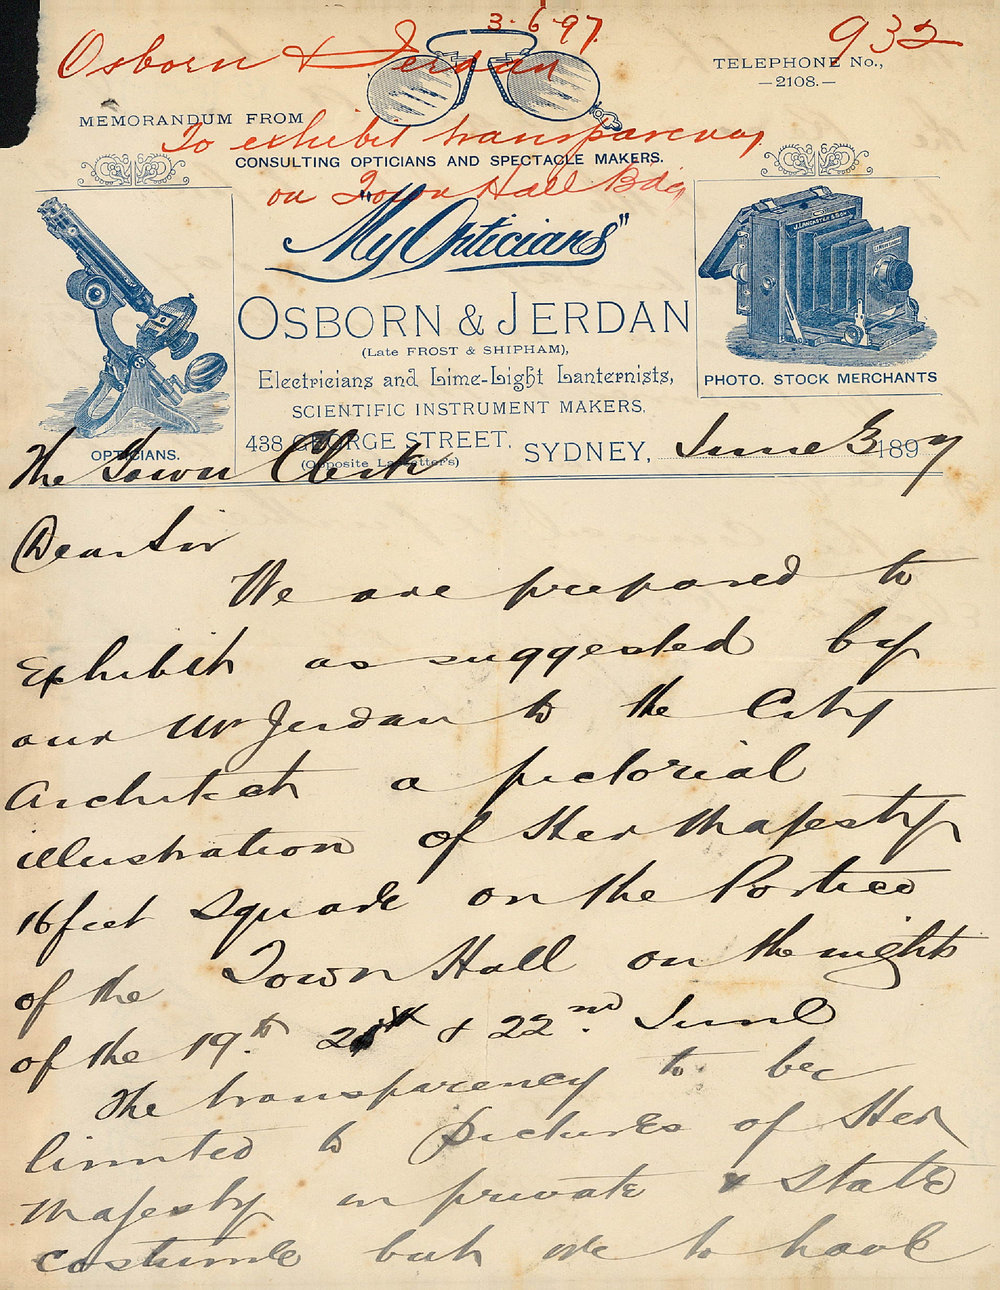 3.6.97
932
Osborn & Jerdan
TELEPHONE No.,
—2108.—
MEMORANDUM FROM
To exhibit transparency
CONSULTING OPTICIANS AND SPECTACLE MAKERS.
on Town Hall Bdg
"My Opticians"
J. LANCASTER & SON
OSBORN & JERDAN
(Late FROST & SHIPHAM),
Electricians and Lime-Light Lanternists,
PHOTO. STOCK MERCHANTS
SCIENTIFIC INSTRUMENT MAKERS,
438 GEORGE STREET.
SYDNEY, June 3 1897
OPTICIANS.
(Opposite Lassetter's)
The Town Clerk
Dear Sir
We are prepared to
Exhibit as suggested by
our Mr Jerdan to the City
Architect a pictorial
illustration of Her Majesty
16 feet square on the Portico
of the Town Hall on the nights
of the 19th 21st & 22nd June
The transparency to be
limited to pictures of Her
Majesty in private & state
costume but we to have